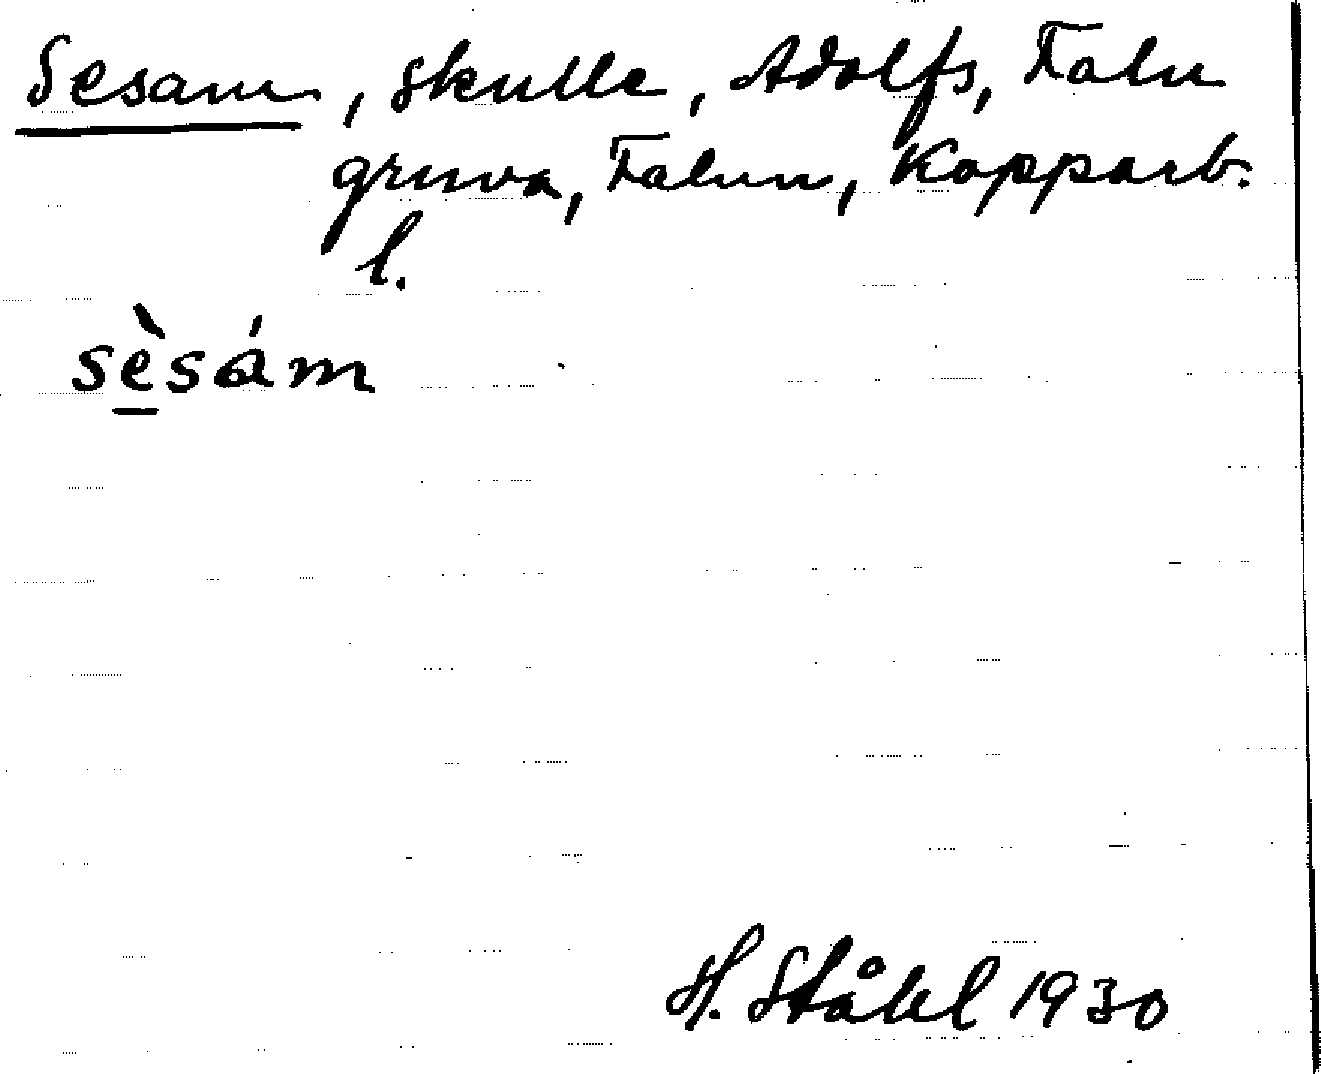 Sesam, skulle, Adolfs, Falu
gruva, Falun, Kopparb.
l.
sèsám
H. Ståhl 1930